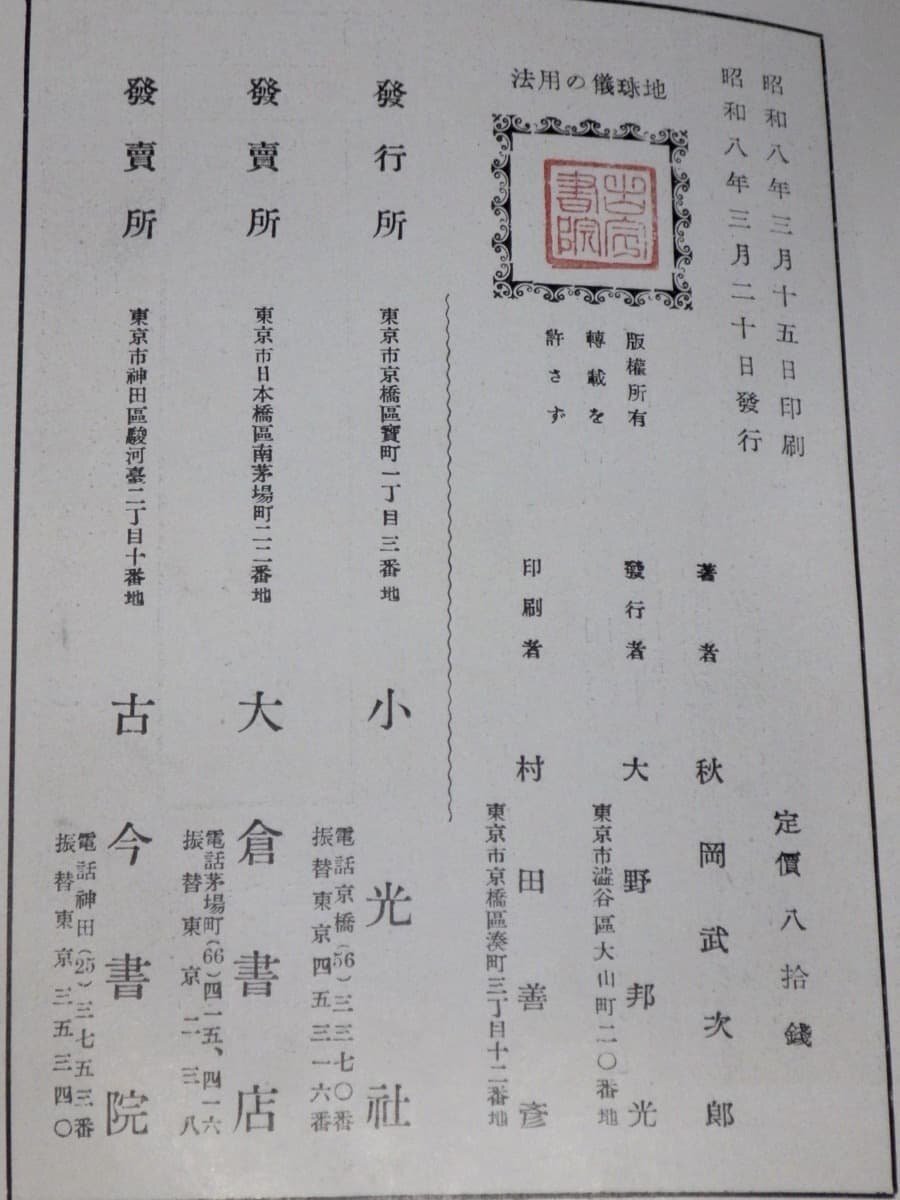 昭和八年三月十五日印刷
昭和八年三月二十日發行
定價八拾錢
地球儀の用法
古今書院
版權所有
轉載を
許さず
著者 秋岡武次郎
發行者 大野邦光
東京市澁谷區大山町二〇番地
印刷者 村田善彦
東京市京橋區湊町三丁目十二番地
發行所 東京市京橋區寶町一丁目三番地 小光社
電話京橋(56)三三七〇番
振替東京四五三一六番
發賣所 東京市日本橋區南茅場町二二番地 大倉書店
電話茅場町(66)四一五、四一六
振替東京二三八
發賣所 東京市神田區駿河臺二丁目十番地 古今書院
電話神田(25)三七五三番
振替東京三五三四〇